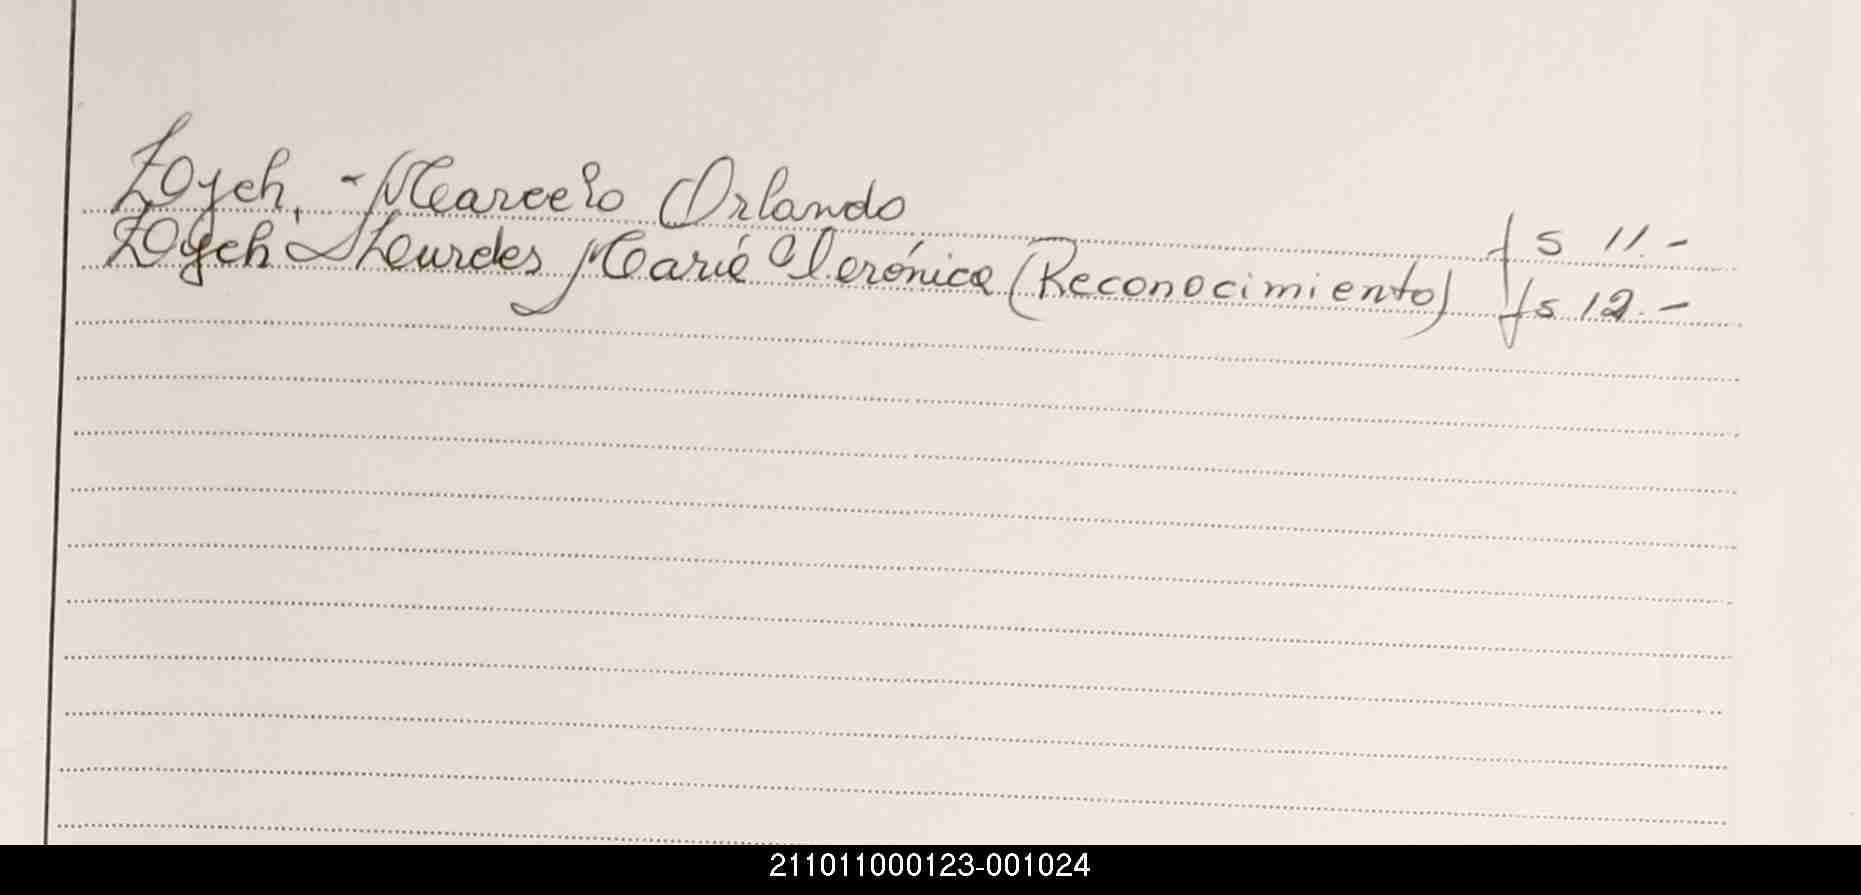 Zoych, - Marcelo Orlando fs 11.-
Zoych Lourdes María Verónica (Reconocimiento) fs 12.-
211011000123-001024